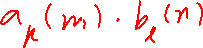 a_k(m) · b_l(n)